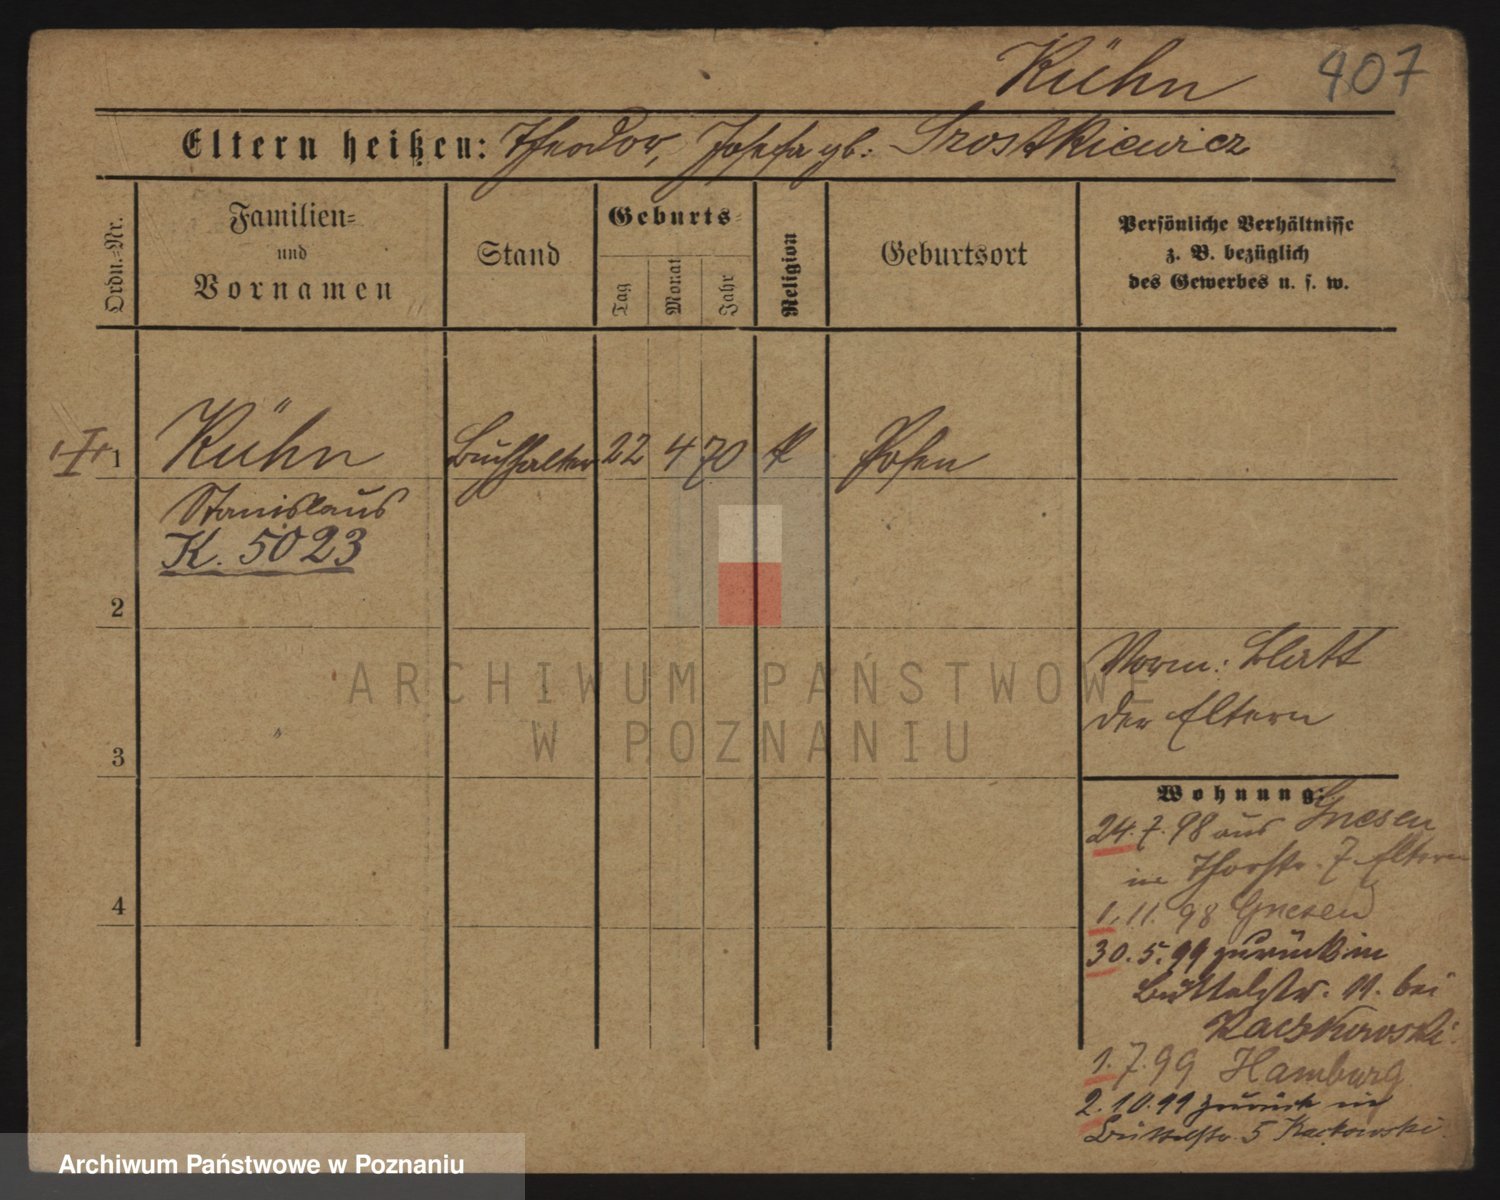 Kühn 407
Eltern heißen: Theodor, Josefa gb: Szostkiewicz
Ordn.-Nr.
Familien-
und
Vornamen
Stand
Geburts-
Tag
Monat
Jahr
Religion
Geburtsort
Persönliche Verhältnisse
z. B. bezüglich
des Gewerbes u. s. w.
1 Kühn Buchhalter 22 4 70 k Posen
Stanislaus
K. 5023
2
Vorm: Blatt
der Eltern
3
Wohnung:
24.7.98 aus Gnesen
in Thorstr. 7 Eltern
1.11.98 Gnesen
4
30.5.99 zurück in
Büttelstr. 11. bei
Kaczkowski.
1.7.99 Hamburg
2.10.99 zurück in
Büttelstr. 5 Kaczkowski
ARCHIWUM PAŃSTWOWE
W POZNANIU
Archiwum Państwowe w Poznaniu